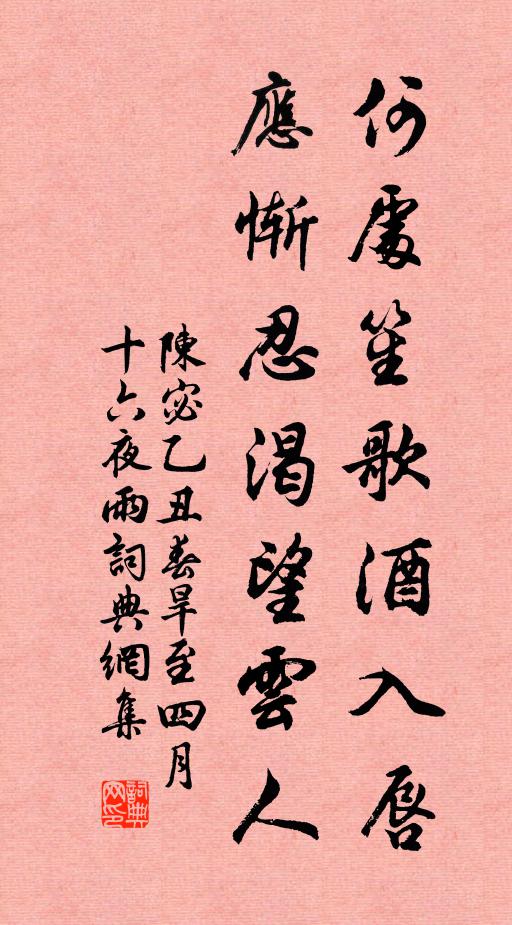 何處笙歌酒入唇
應慚忍渴望雲人
陳宓乙丑春旱至四月
十六夜雨詞典網集
詞典
网印